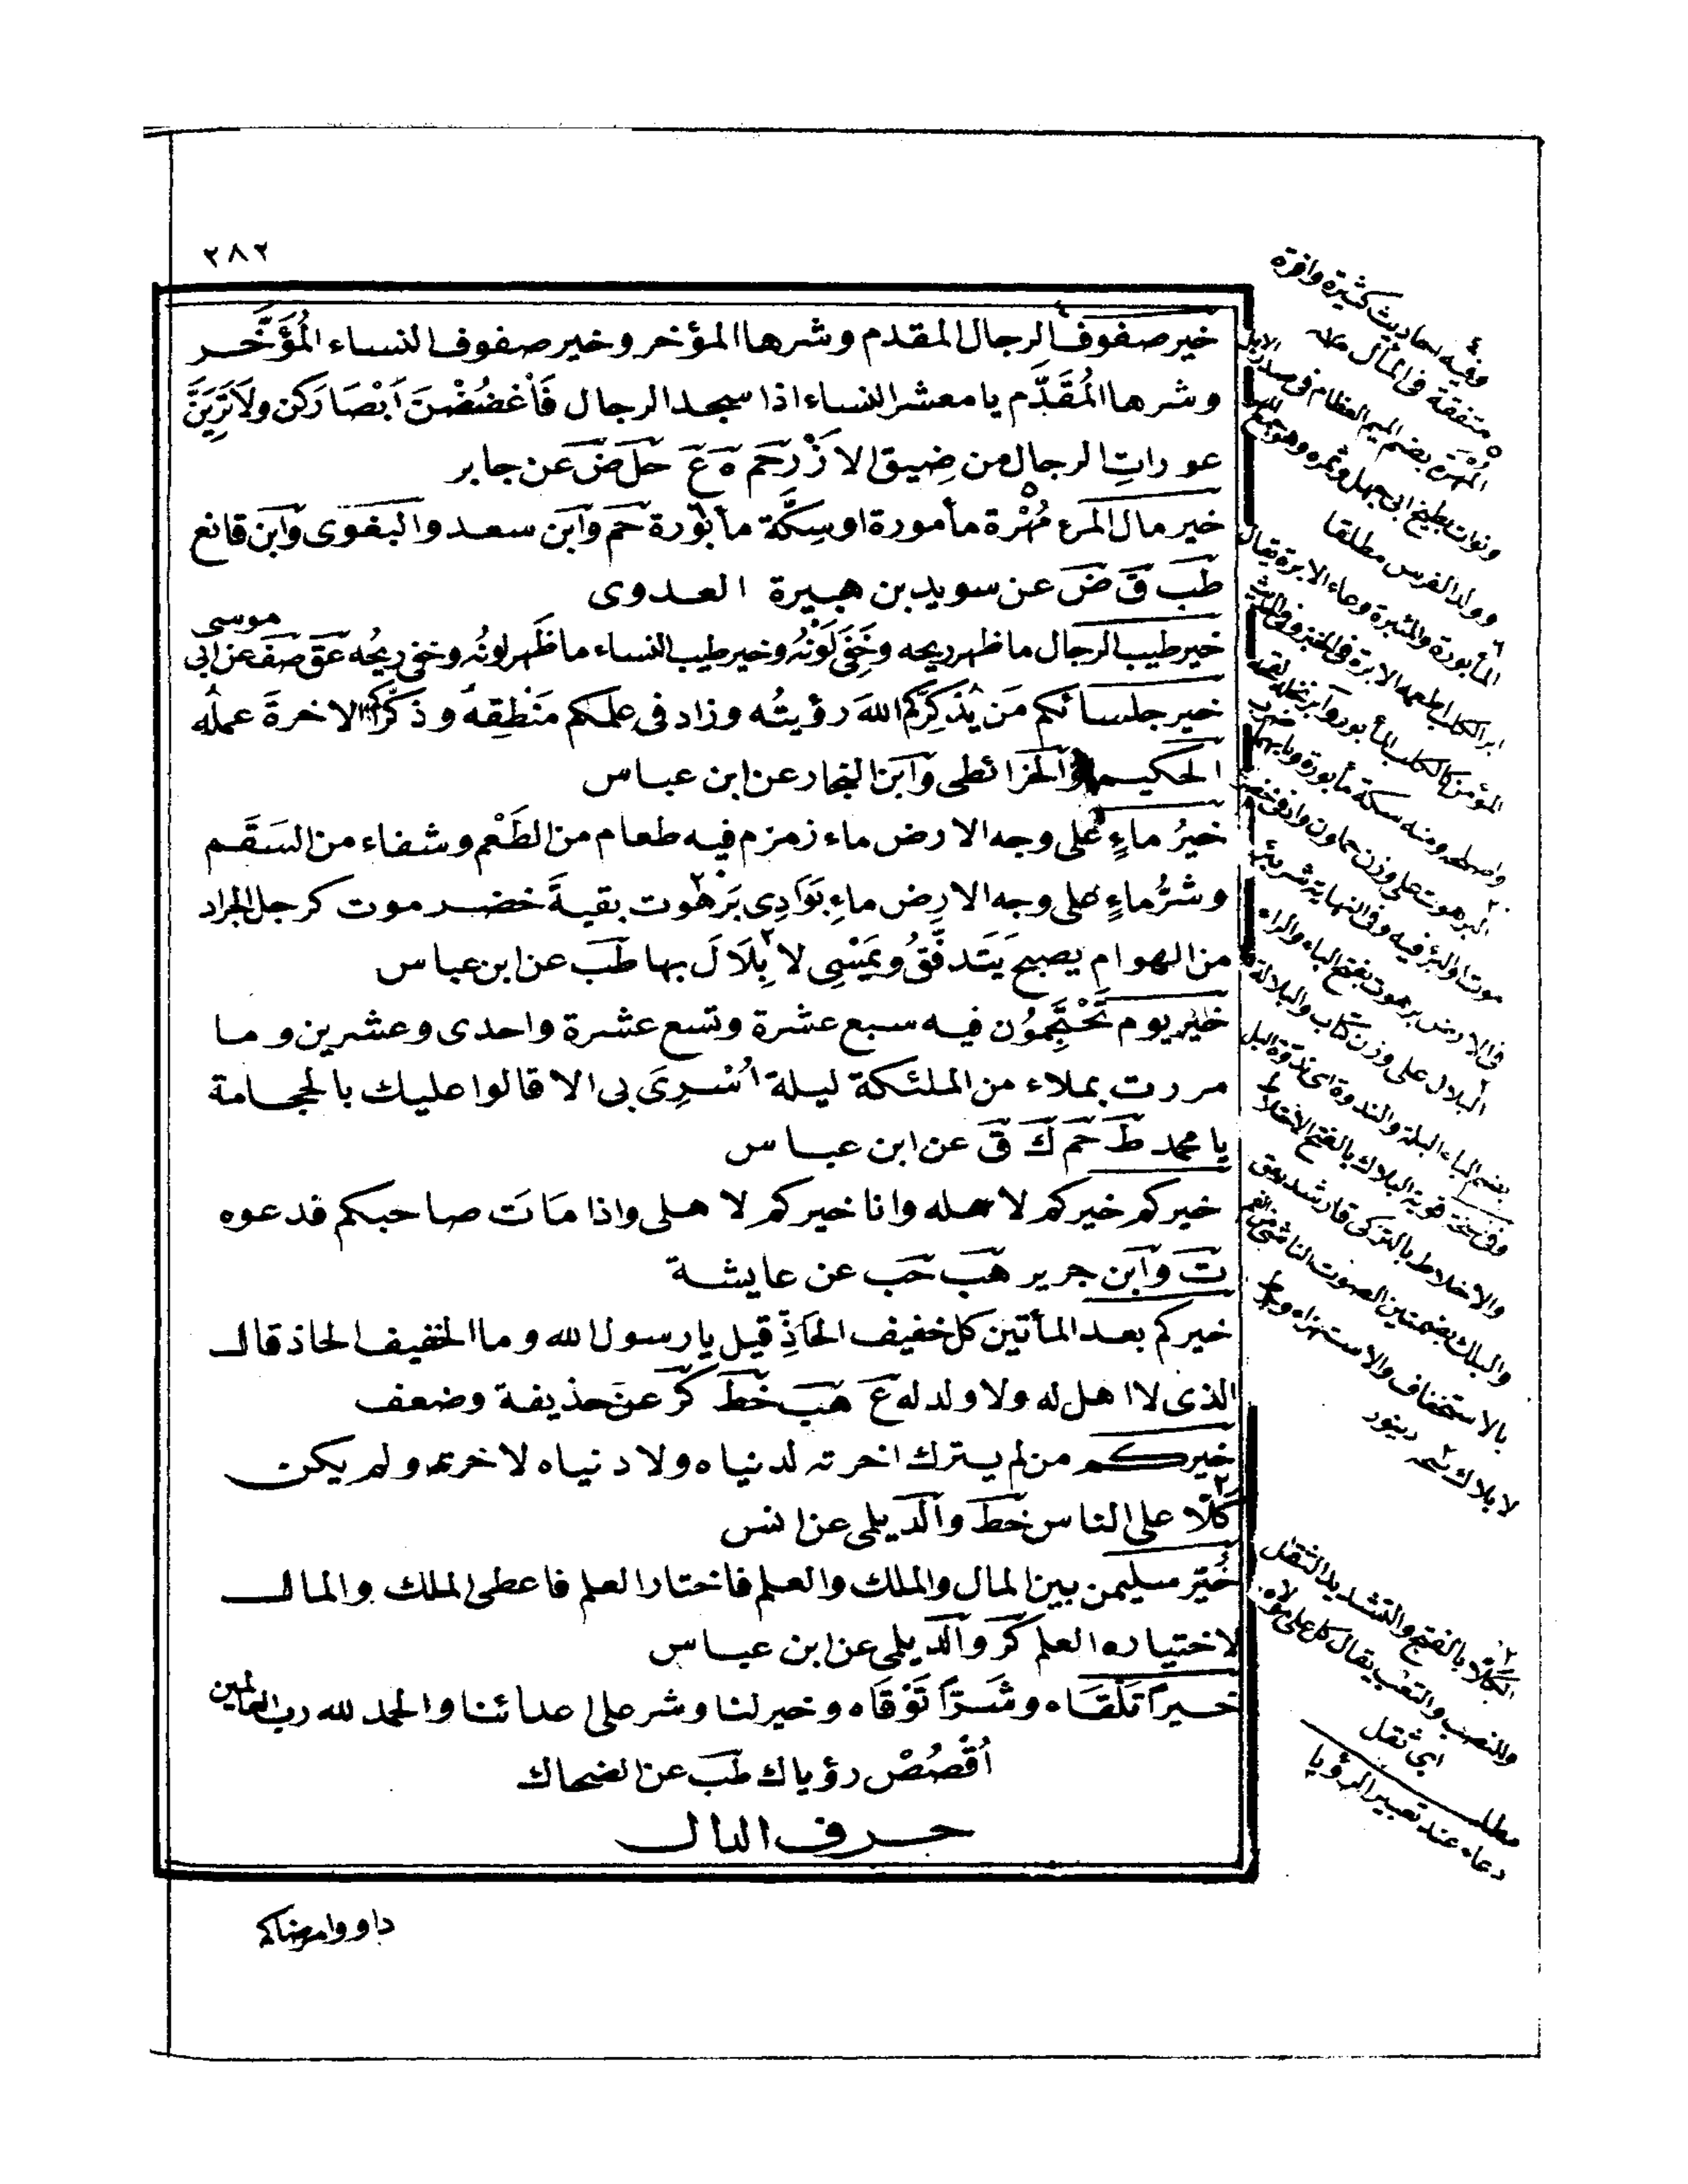 ٢٨٢
خير صفوف الرجال المقدم وشرها المؤخر وخير صفوف النساء المُؤَخَّر
وشرها المُقَدَّم يا معشر النساء اذا سجد الرجال فَاغْضُضْنَ اَبْصَارَكن ولاَ تَرَيَنَّ
عوراتِ الرجال من ضِيق الاُزْرِ حم ه ع حل ض عن جابر
خير مال المرء مُهْرة مأمورة او سِكَّة مأبورة حم وابن سعد والبغوى وابن قانع
طب ق ض عن سويد بن هبيرة العدوى
خير طيب الرجال ما ظهر ريحه وخَفِىَ لَوْنُهُ وخير طيب النساء ما ظَهَر لونُه وخفى ريحُه عق صف عن ابى موسى
خير جلسائكم مَن يُذَكِّرُكُم اللهَ رؤيتُه وزاد فى علمكم مَنْطِقه وذَكَّركم الاخرةَ عملُه
الحكيم والخرائطى وابن النجار عن ابن عباس
خيرُ ماءٍ على وجه الارض ماء زمزم فيه طعام من الطَعْم وشفاء من السَقَم
وشرُّ ماءٍ على وجه الارض ماء بَوَادِى بَرَهُوت بقيةَ خضرموت كرجل الجراد
من الهوام يصبح يَتَدفَّقُ ويَمْسِى لا بِلَالَ بها طب عن ابن عباس
خير يوم تَحْتَجِمُون فيه سبع عشرة وتسع عشرة واحدى وعشرين وما
مررت بملاء من الملئكة ليلة اُسْرِىَ بى الا قالوا عليك بالحجامة
يا محمد ط حم ك ق عن ابن عباس
خيركم خيركم لاهله وانا خيركم لاهلى واذا مَاتَ صاحبكم فدعوه
ت وابن جرير هب حب عن عايشة
خيركم بعد المأتين كل خفيف الحَاذِّ قيل يا رسول الله وما الخفيف الحاذ قال
الذى لا اهل له ولا ولد له ع هب خط كر عن حذيفة وضعف
خيركم من لم يترك اخرته لدنياه ولا دنياه لاخرته ولم يكن
كَلّا على الناس خط والديلمى عن انس
خُيِّر سليمن بين المال والملك والعلم فاختار العلم فاعطى الملك والمال
لاختياره العلم كر والديلمى عن ابن عباس
خيراً تَلَقَّاه وشَرّاً تَوَقَّاه وخير لنا وشر على اعدائنا والحمد لله رب العالمين
اُقْصُصْ رؤياك طب عن الضحاك
حرف الدال
وفيه احاديث كثيرة وافرة
متفقة فى المأل
المُهْرَة بضم الميم العظام فى صدر الابل
وولد الفرس مطلقا
المأبورة والمئبرة وعاء الابرة يقال
المؤمن كالكلب المأبور
واصطلح ومنه سكة مأبورة
البرهوت على وزن حاون واد فى
فى الارض برهوت بفتح الباء والراء
البلال على وزن كتاب والبلالة
بضم الباء البلة والندوة
وفى نسخة قوية البلاك بالفتح الاختلاط
والاختلاط بالتركى
والبلك بضمتين الصوت الناشى من الفم
بالاستخفاف والاستهزاء
الكَلّا بالفتح والتشديد الثقل
والنصب والتعب يقال كل على مولاه
اى ثقل
مطلب
دعاء عند تعبير الرؤيا
داووا مرضاكم